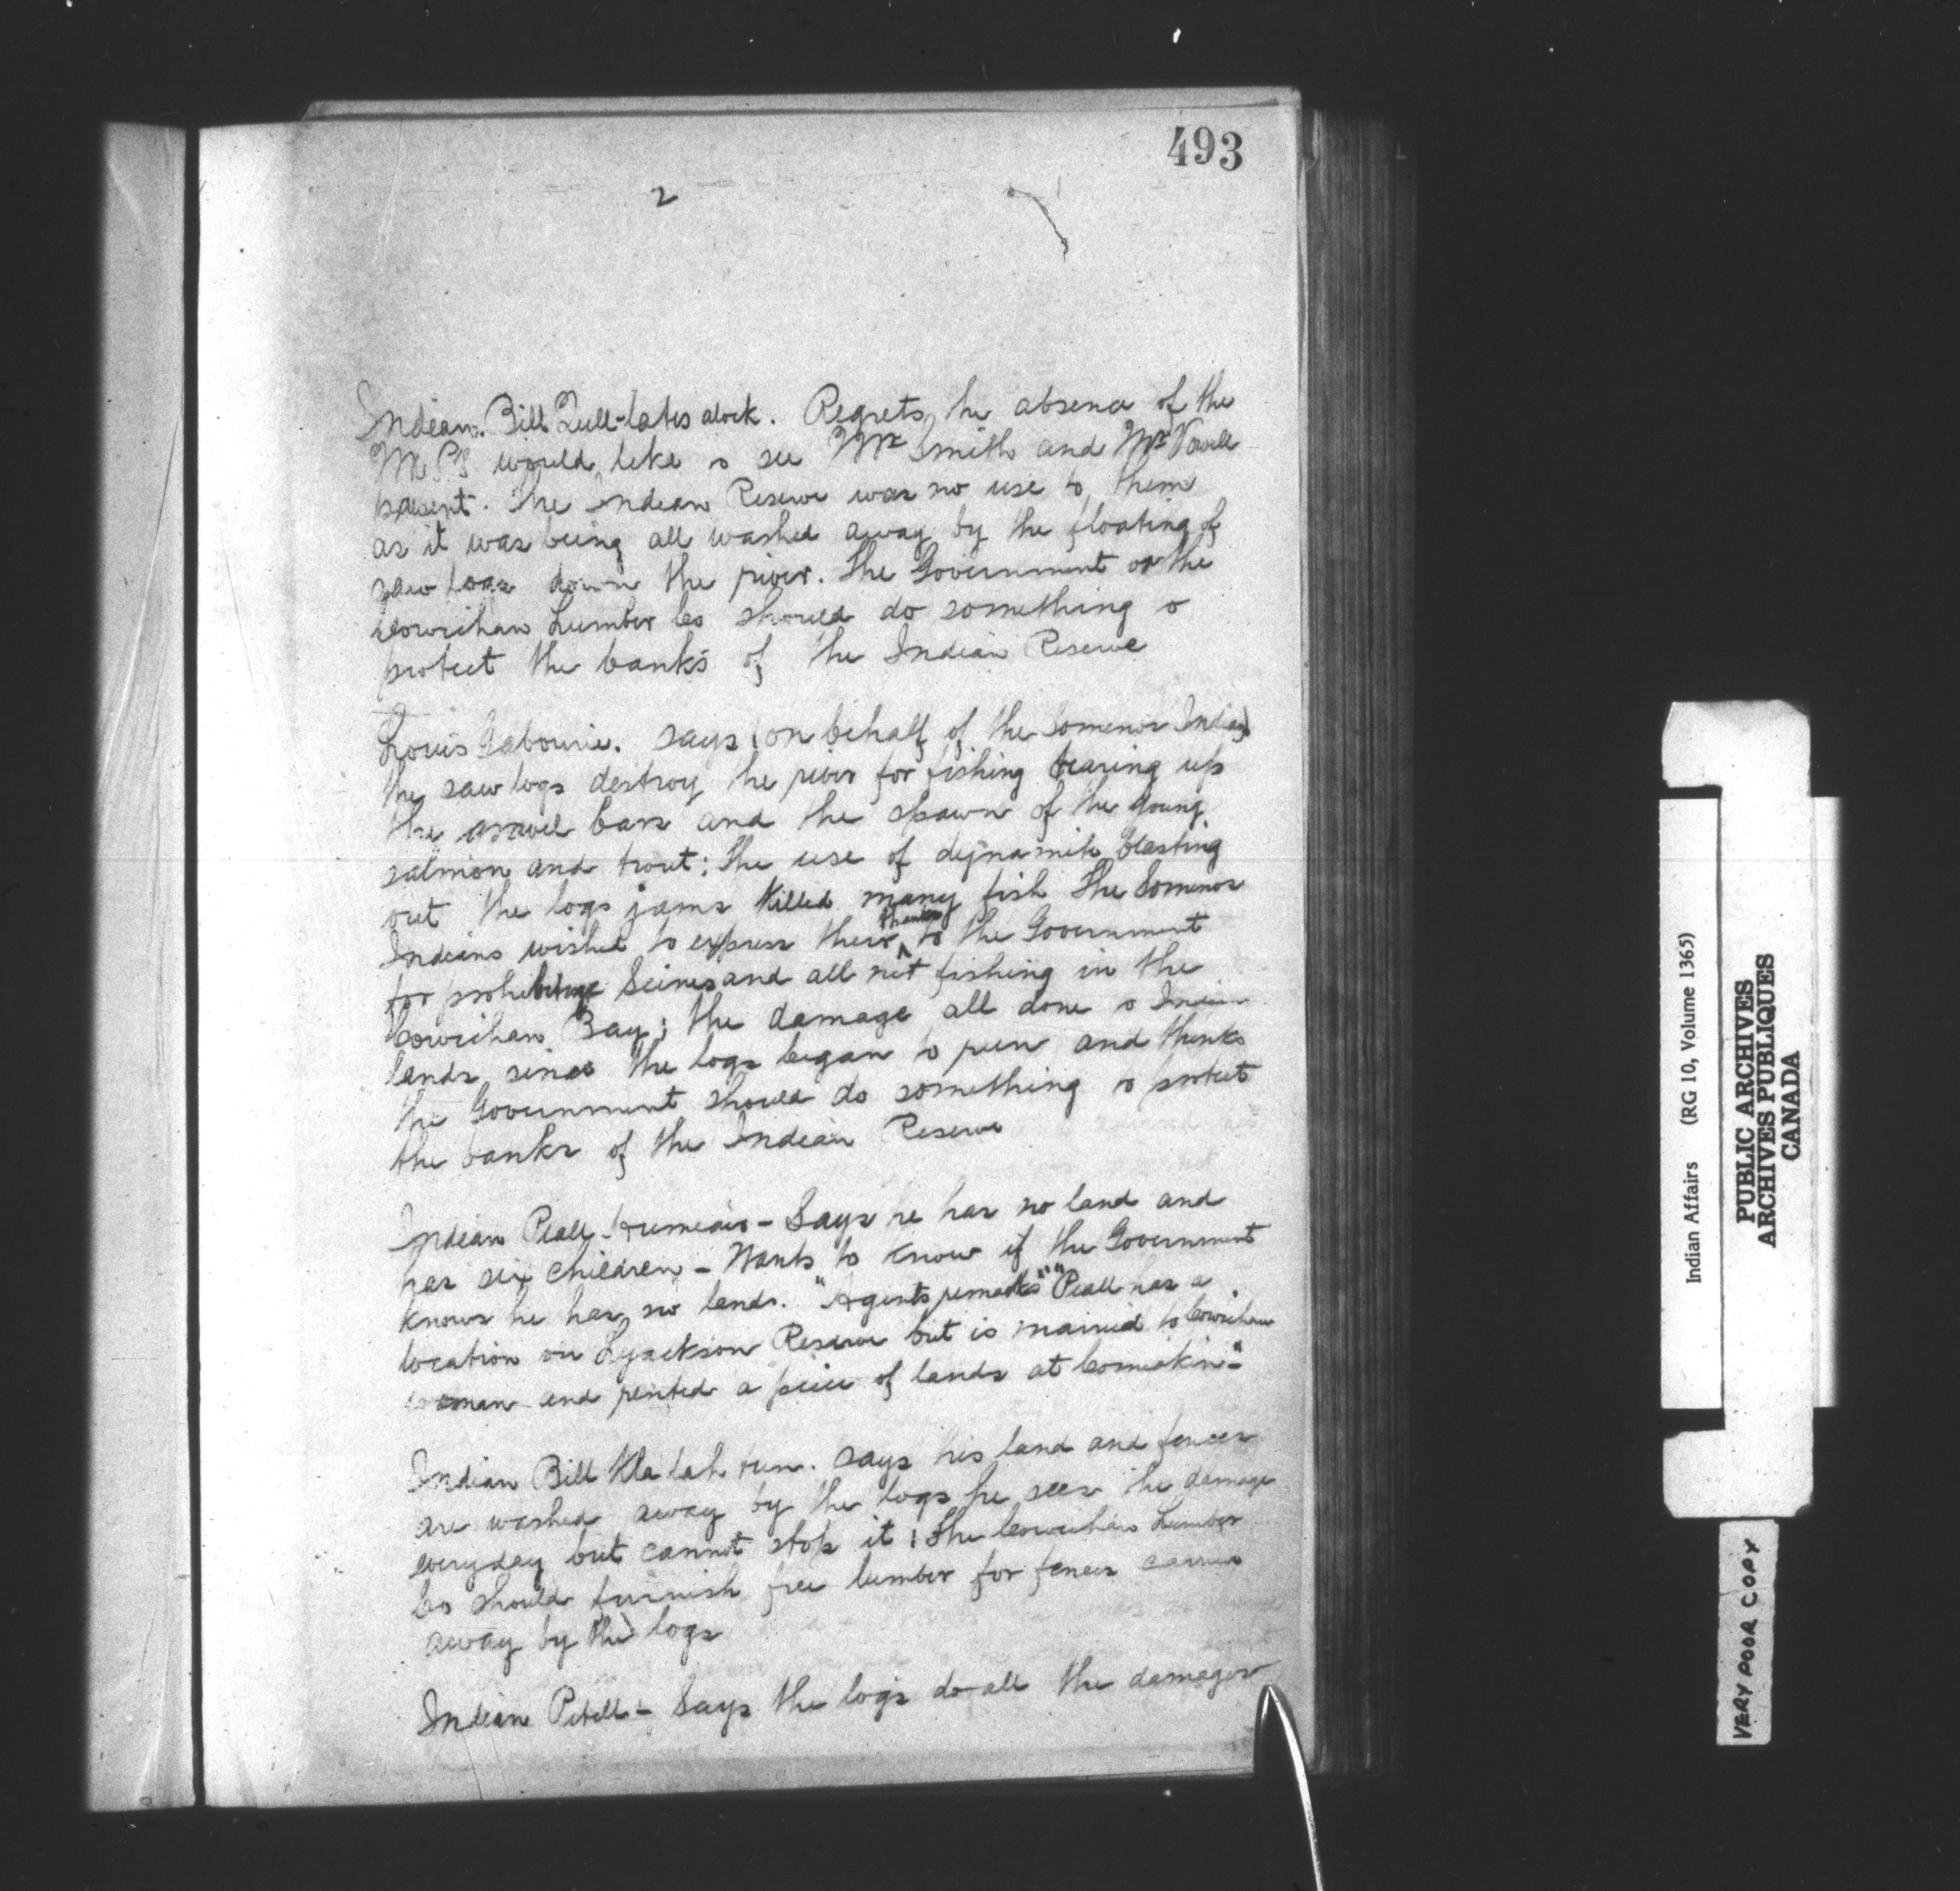 493
2
Indian. Bill Regrets the absence of the
M.P.s would like to see Mr Smith and Mr Vowell
present. The Indian Reserve was no use to them
as it was being all washed away by the floating of
saw logs down the river. The Government or the
Cowichan Lumber Co should do something to
protect the banks of the Indian Reserve
Louis says (on behalf of the Somenos Indians)
the saw logs destroy the river for fishing tearing up
the gravel bars and the spawn of the young
salmon and trout: the use of dynamite blasting
out the logs jams killed many fish The Somenos
Indians wished to express their thanks to the Government
for prohibiting Seines and all net fishing in the
Cowichan Bay; the damage all done to Indian
lands since the logs began to run and thinks
the Government should do something to protect
the banks of the Indian Reserve
Indian Peall - Says he has no land and
has six children - Wants to know if the Government
knows he has no lands. "Agents remarks" "Peall has a
location on Lyackson Reserve but is married to Cowichan
woman and rented a piece of lands at Comeakin"
Indian Bill says his land and fences
are washed away by the logs he sees the damage
everyday but cannot stop it: The Cowichan Lumber
Co should furnish free lumber for fences carried
away by the logs
Indian - Says the logs do all the damages
Indian Affairs (RG 10, Volume 1365)
PUBLIC ARCHIVES
ARCHIVES PUBLIQUES
CANADA
VERY POOR COPY